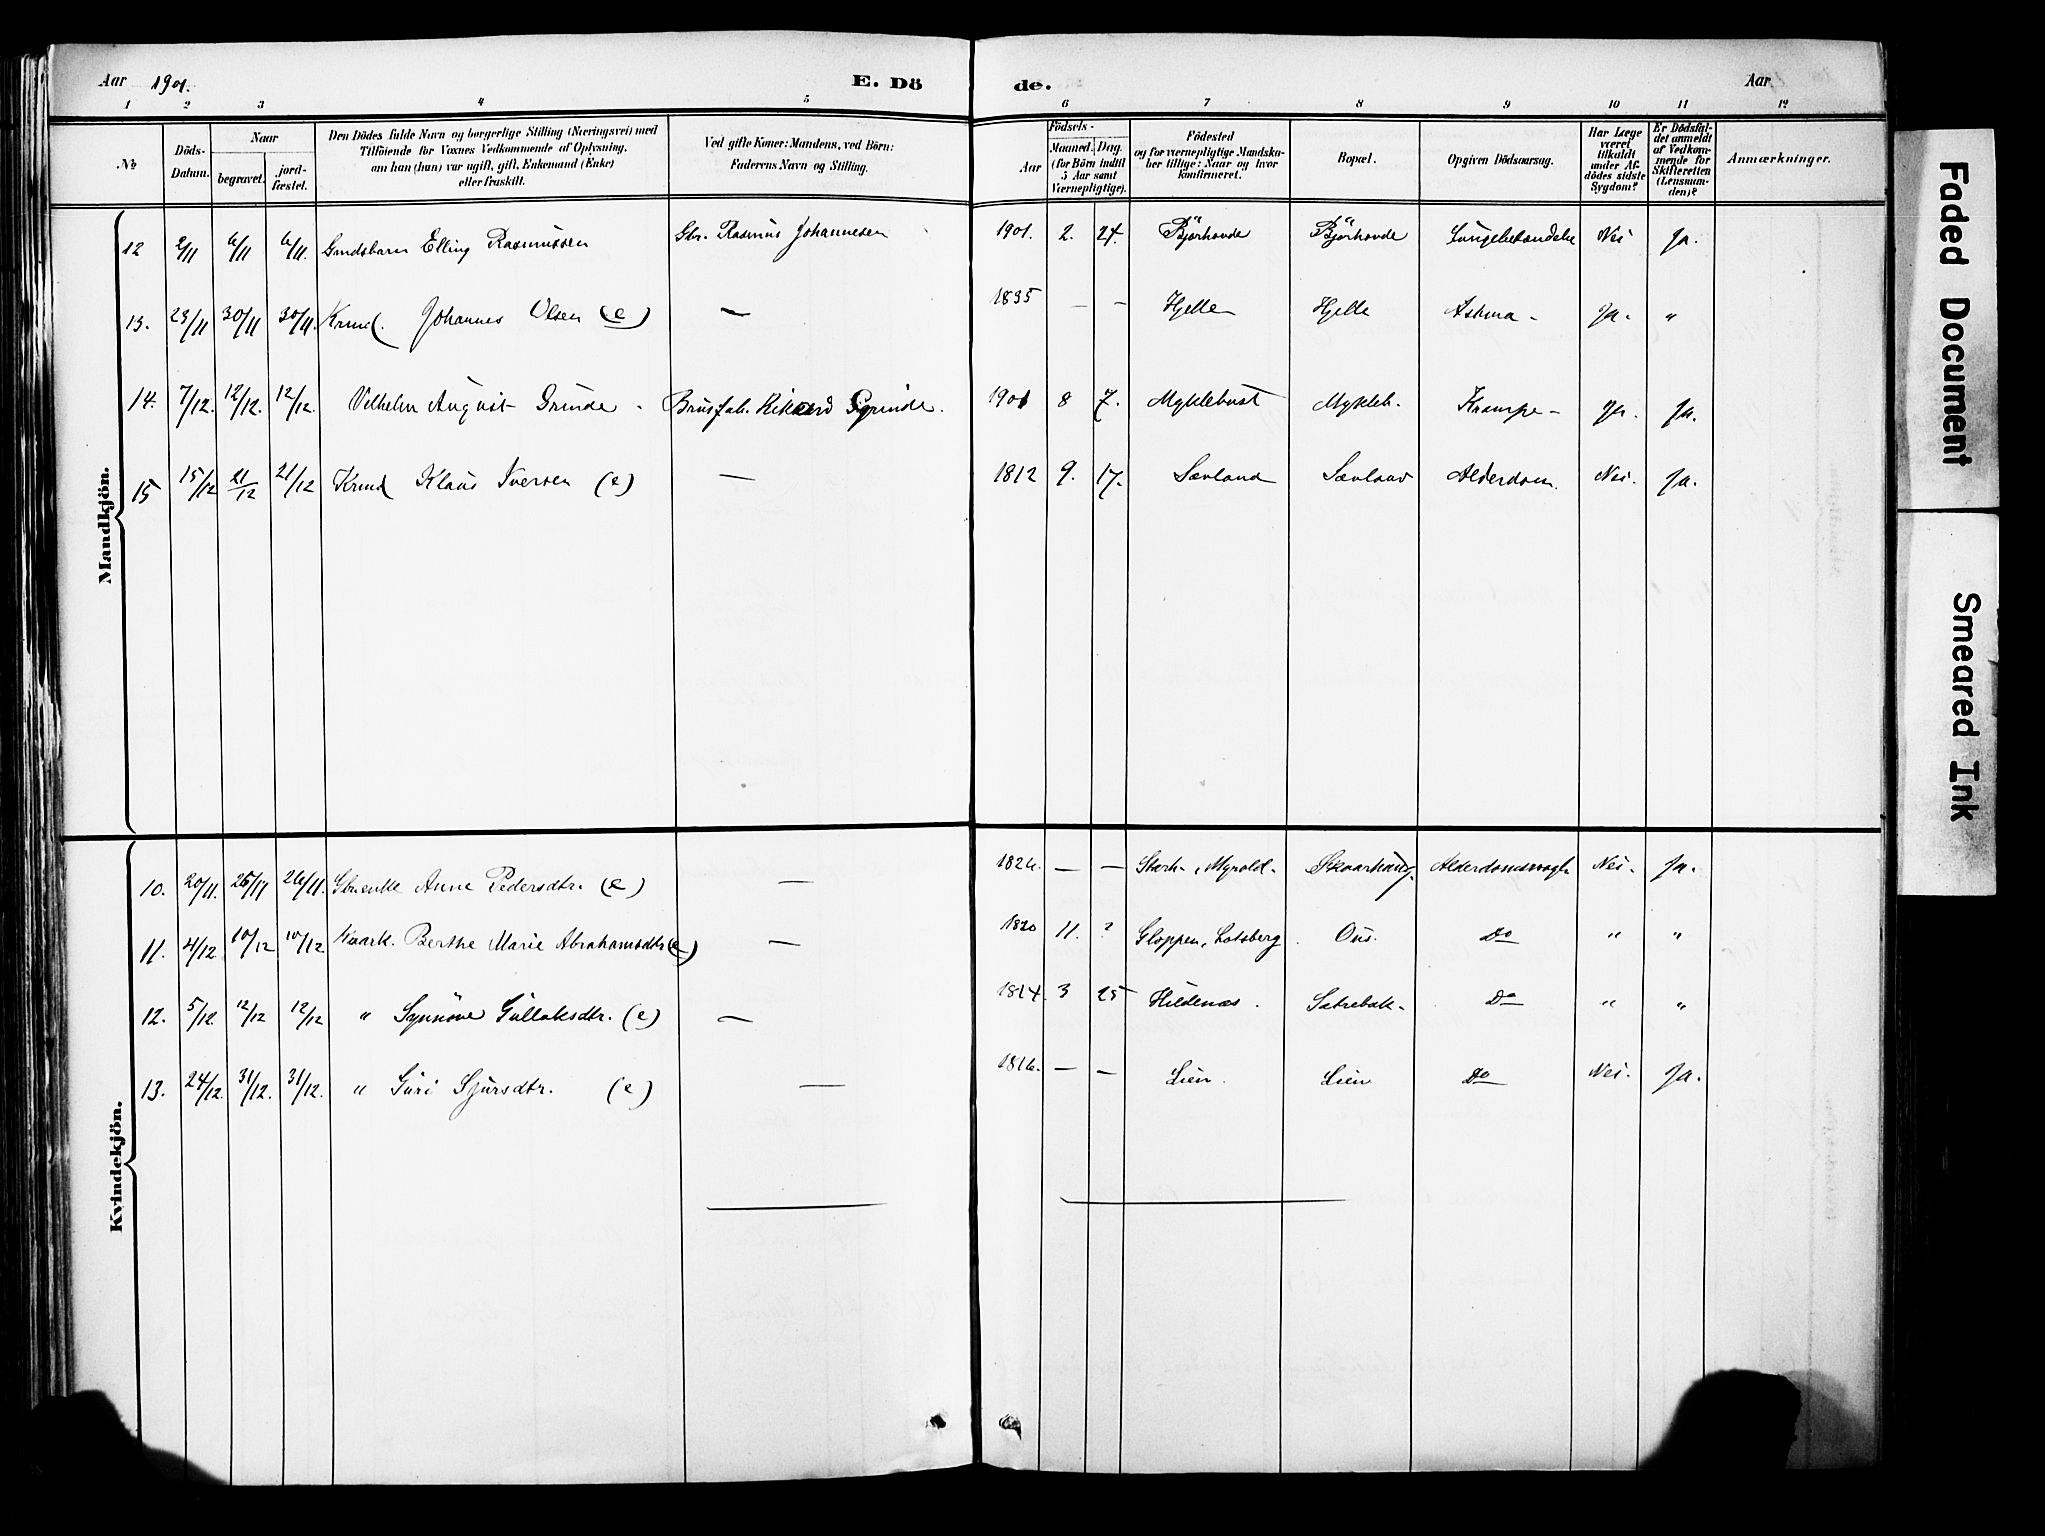 Aar 1901. E. Dö de. Aar
1 2 3 4 5 6 7 8 9 10 11 12
No Döds-Datum. Naar begravet. jord-fæstet. Den Dödes fulde Navn og borgerlige Stilling (Næringsvei) med Tilföiende for Voxnes Vedkommende af Oplysning, om han (hun) var ugift, gift, Enkemand (Enke) eller fraskilt. Ved gifte Koner: Mandens, ved Börn: Faderens Navn og Stilling. Aar Födsels- Maaned. Dag. (for Börn indtil 5 Aar samt Værnepligtige). Födested og for værnepligtige Mandska-ber tillige: Naar og hvor konfirmeret. Bopæl. Opgiven Dödsaarsag. Har Læge været tilkaldt under Af-dödes sidste Sygdom? Er Dödsfal-det anmeldt af Vedkom-mende for Skifteretten (Lensman-den)? Anmærkninger.
Mandkjön.
12 2/11 6/11 6/11. Grndsbarn Elling Rasmussen Gbr. Rasmus Johannesen 1901. 2. 24. Björhovde Björhovde Lungebetændelse Nei Ja.
13. 23/11 30/11 30/11. Krmd. Johannes Olsen (e) — 1835 — — Hjelle Hjelle Asthma - Ja. "
14. 7/12. 12/12. 12/12. Vilhelm August Grinde - Brusfab. Rikard Grinde. 1901 8 7. Myklebust Mykleb. Krampe - Ja. Ja.
15 15/12 21/12 21/12 Krmd Klaus Iversen (e) — 1812 9. 17. Sævland Sævland Alderdom. Nei. Ja.
Kvindekjön.
10. 20/11. 26/11 26/11. Gbrenke Anne Pedersdtr. (e) — 1826. — — Stark-, Myrold- Alderdomssvagh Nei. Ja.
11. 4/12 10/12 10/12 Kaark. Berthe Marie Abrahamsdtr (e) — 1820 11. ? Gloppen, Lotsberg Ous. Do " "
12. 5/12. 12/12 12/12 " Synnöve Gullaksdtr. (e) — 1814. 3 25 Hildenæs. Sætrebak- Do " "
13. 24/12. 31/12. 31/12. " Guri Sjursdtr. (e) — 1816. — — Lien. Lien Do Nei. Ja.
Faded Document
Smeared Ink